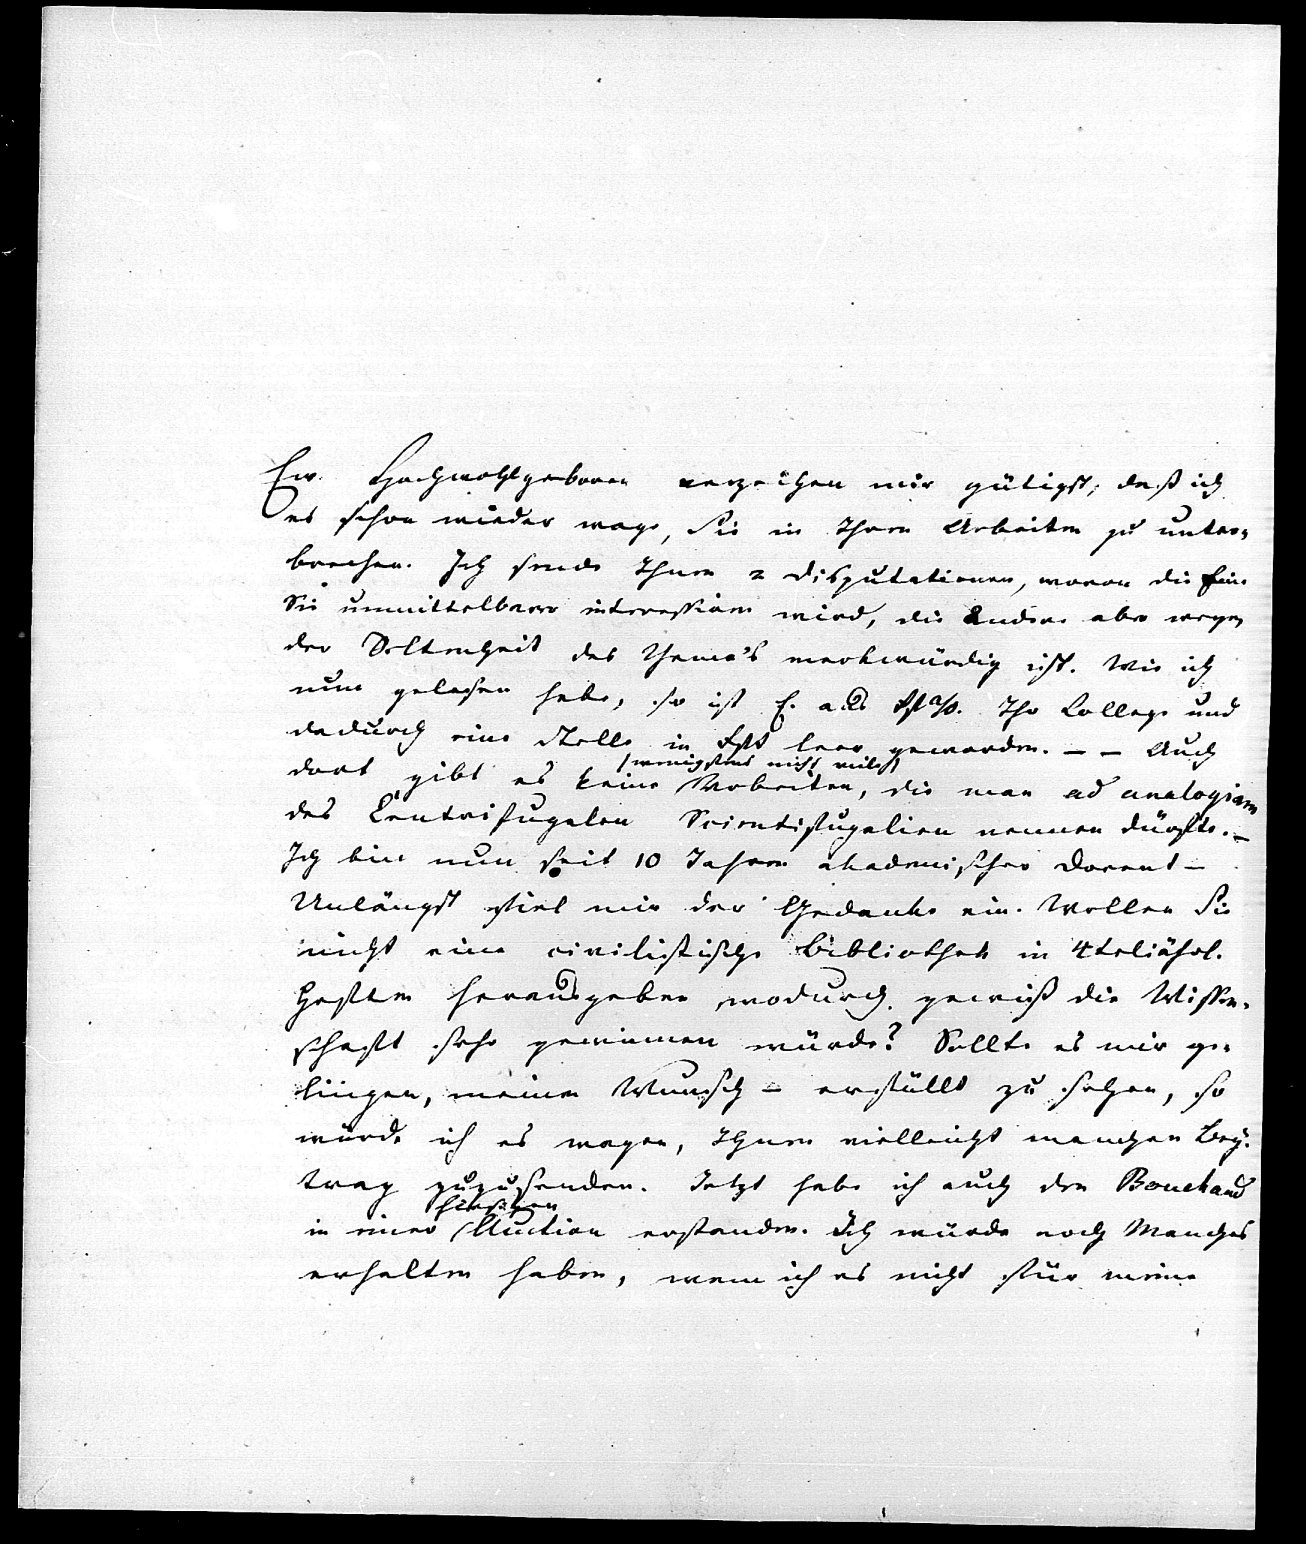 Ew. Hochwohlgeboren verzeihen mir gütigst, daß ich
es schon wieder wage, Sie in Ihren Arbeiten zu unter-
brechen. Ich sende Ihnen 2 Disputationen, wovon die Eine
Sie unmittelbarer interessiren wird, die Andere aber wegen
der Seltenheit des Thema's merkwürdig ist. Wie ich
nun gelesen habe, so ist H. aus Ihr College und
dadurch eine Stelle in leer geworden. – – Auch
(wenigstens nicht viele)
dort gibt es keine Arbeiten, die man ad analogiam
des Centrifugalen Scientifugalien nennen dürfte. –
Ich bin nun seit 10 Jahren akademischer Docent –
Unlängst fiel mir der Gedanke ein. Wollen Sie
nicht eine civilistische Bibliothek in 4teljährl.
Heften herausgeben, wodurch gewiß die Wissen-
schaft sehr gewinnen würde? Sollte es mir ge-
lingen, meinen Wunsch – erfüllt zu sehen, so
würde ich es wagen, Ihnen vielleicht manchen Bey-
trag zuzusenden. Jetzt habe ich auch den Bouchaud
hiesigen
in einer Auction erstanden. Ich würde noch Manches
erhalten haben, wenn ich es nicht für meine